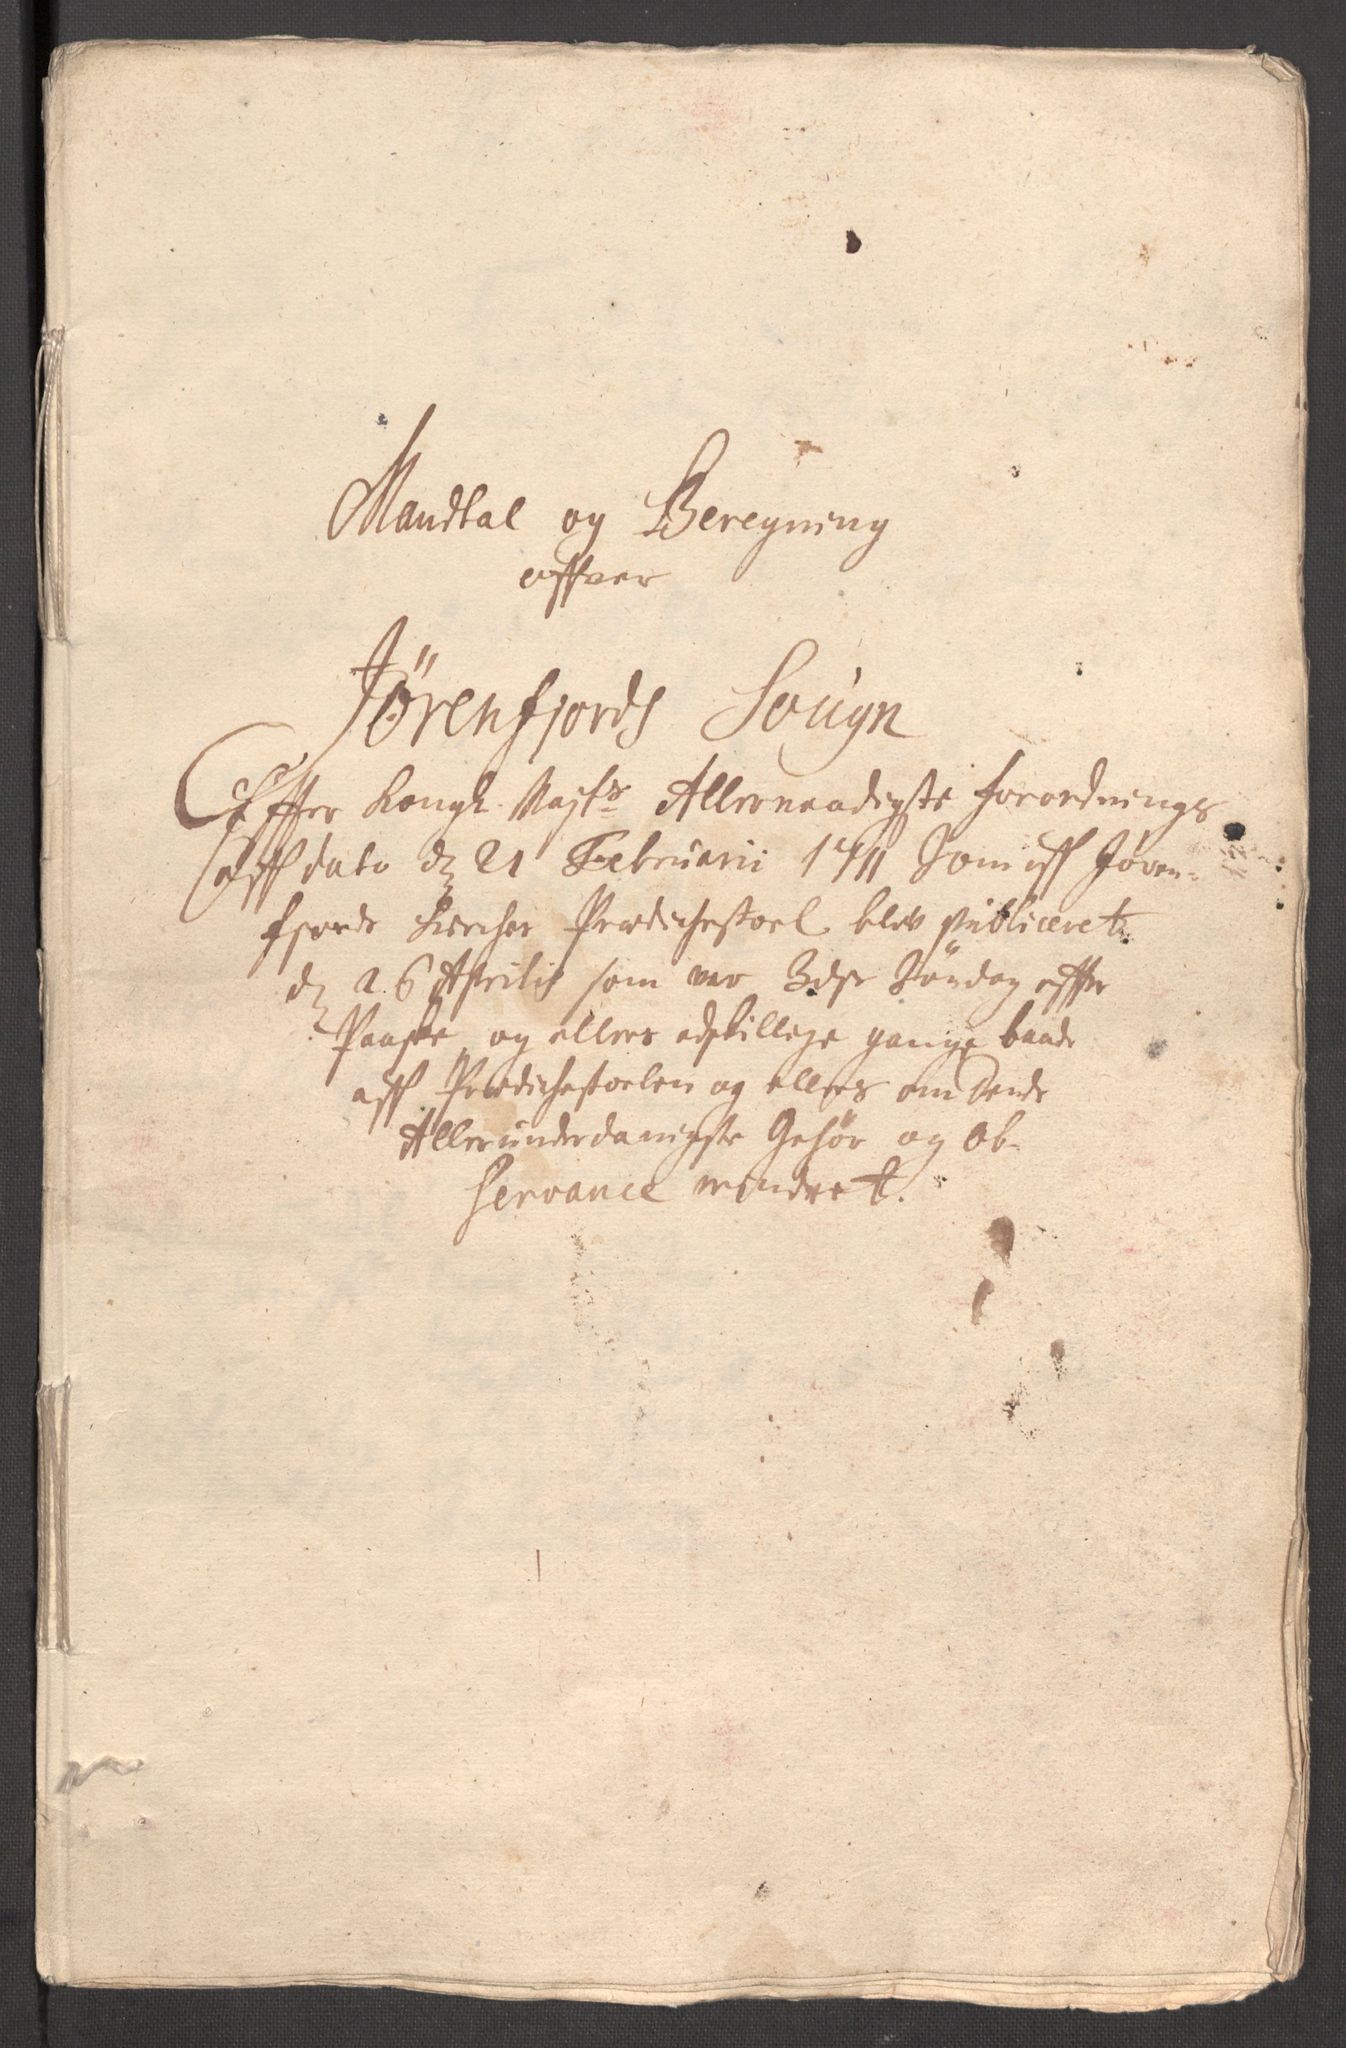 Mandtal og Beregning
offver
Jörenfjords Sougn
Effter Kongl. Majts Allernaadigste forordnings
aff dato dz 21 Februarii 1711 Som aff Jören-
fjords Kirches Prædichestoel blev publiceret
dz 26 Aprilis som var 3die Söndag effter
Paaske, og ellers adskillige gange baade
aff Prædichestoelen og ellers om dends
Allerunderdanigste Gehör og Ob-
servance mindret.